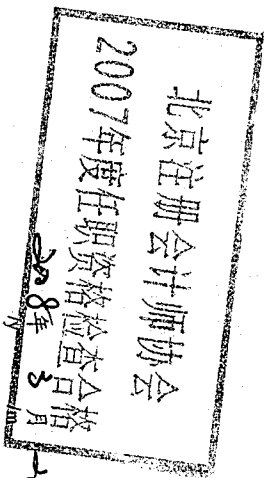 北京注册会计师协会
2007年度任职资格检查合格
2008年 3月 日